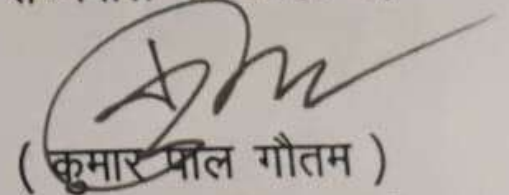 ( कुमार पाल गौतम )